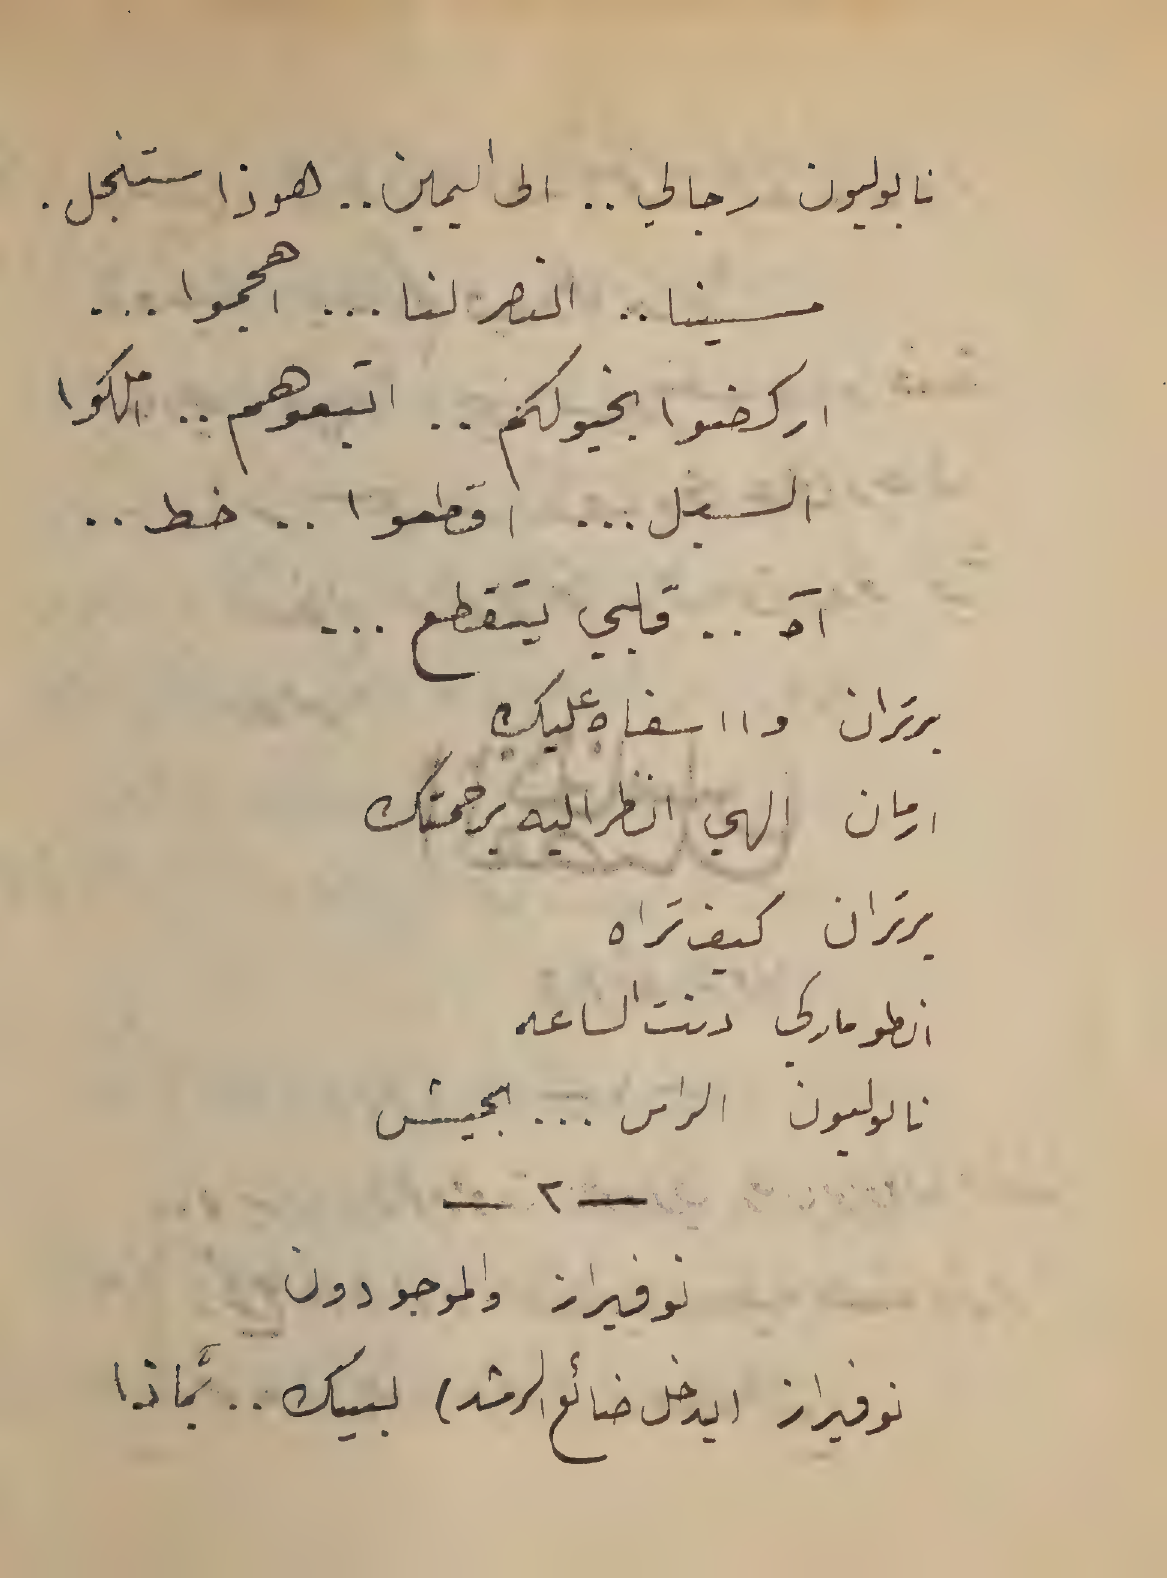 نابوليون رجالي .. الى اليمين .. هوذا ستنجل .
مسينا .. النصر لنا ... اهجموا ...
اركضوا بخيولكم .. اتبعوهم .. املكوا
السبل ... اقطعوا .. خط ..
آه .. قلبي يتقطع ...
برتران وا اسفاه عليك
ارمان الهي انظر اليه برحمتك
برتران كيف تراه
انطوماركي دنت الساعه
نابوليون الراس ... بجيش
— ٢ —
نوفيراز والموجودون
نوفيراز (يدخل ضائع الرشد) لبيك .. بماذا